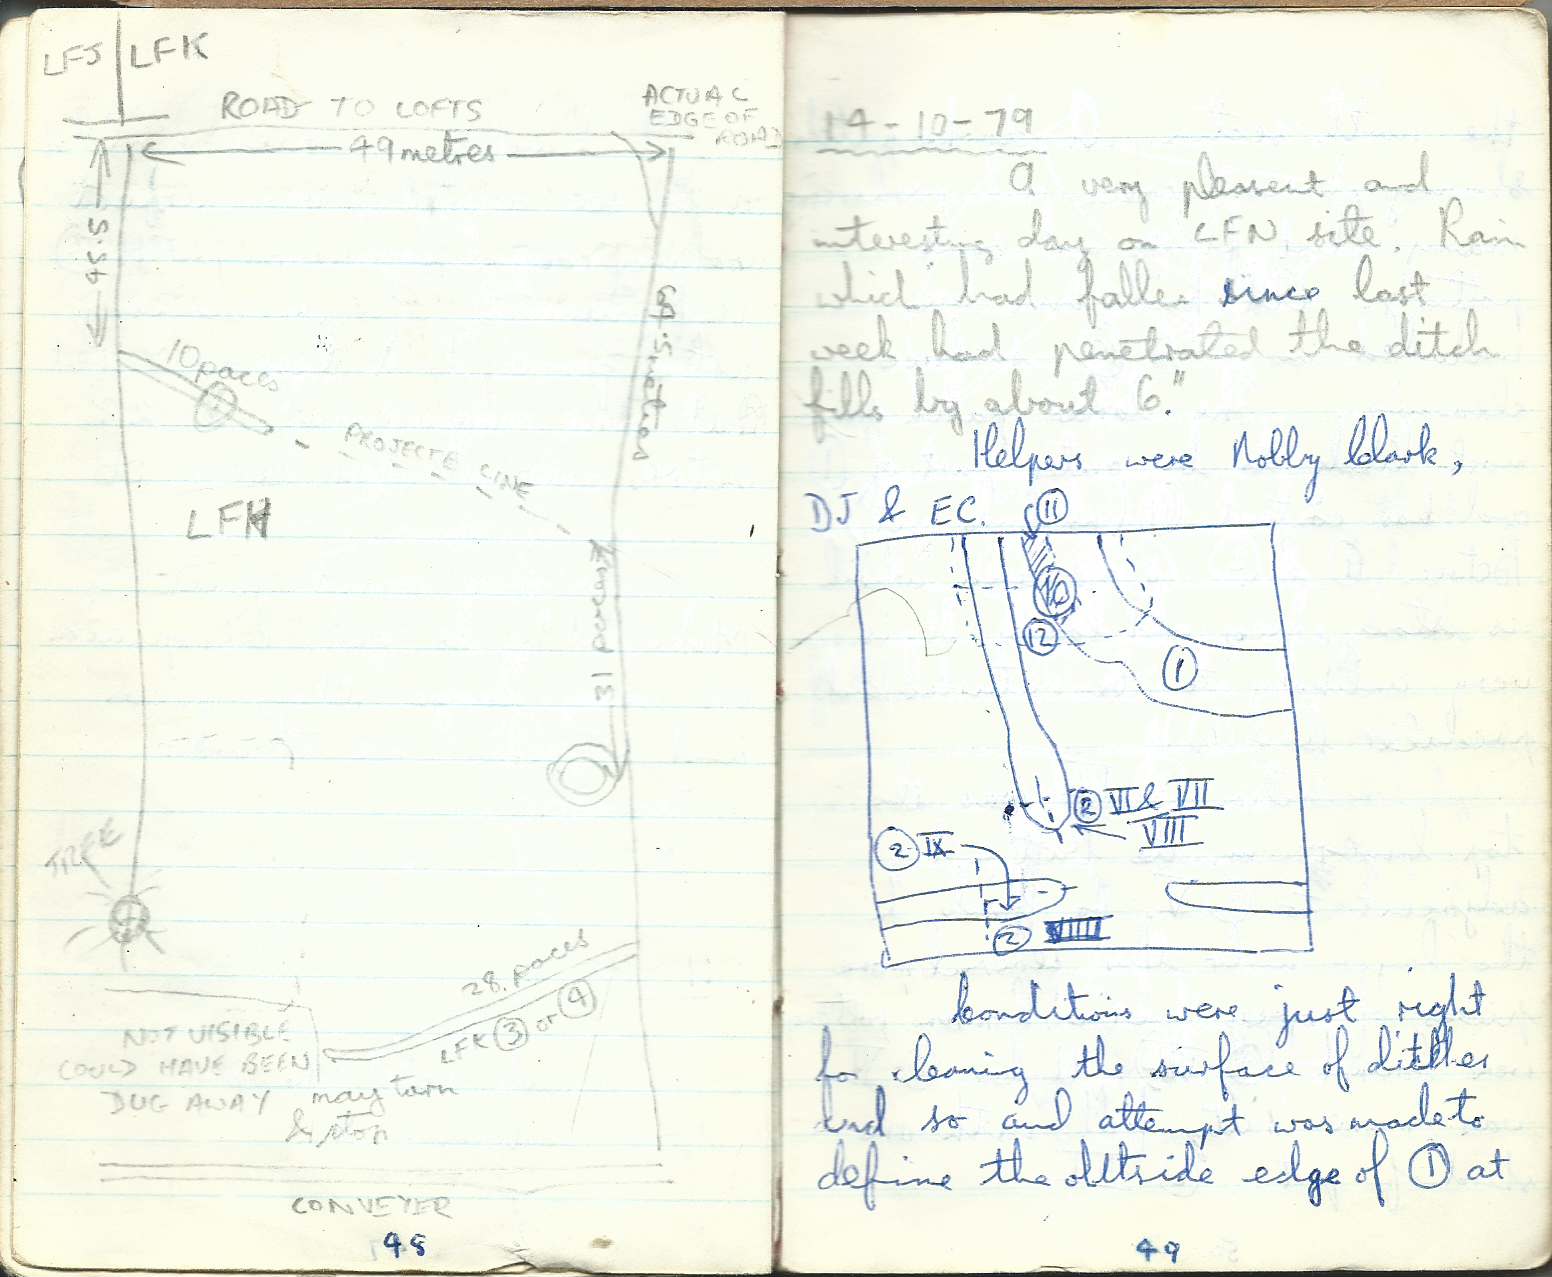 LFJ | LFK
ROAD TO LOFTS
ACTUAL
EDGE OF
ROAD
49 metres
45.5
metres
10 paces
PROJECTE LINE
LFH
31 paces
TREE
28 paces
LFK ③ or ④
NOT VISIBLE
COULD HAVE BEEN
DUG AWAY
may turn
& stop
CONVEYER
48
14-10-79
A very pleasent and
interesting day on LFN site. Rain
which had fallen since last
week had penetrated the ditch
fills by about 6."
Helpers were Nobby Clark,
DJ & EC.
⑪
⑩
⑫
①
② VI & VII
VIII
② IX
② VIIII
Conditions were just right
for cleaning the surface of ditches
and so and attempt was made to
define the outside edge of ① at
49